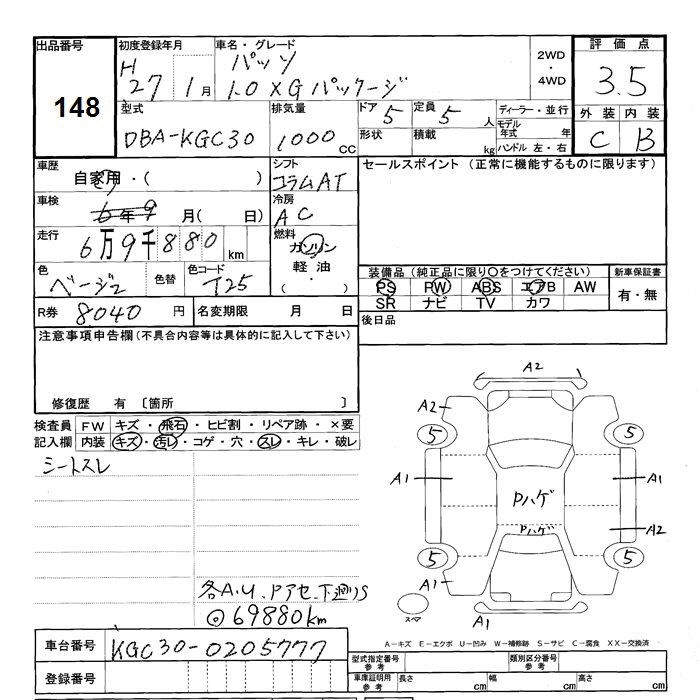 出品番号 初度登録年月 車名・グレード 評価点
148
H 27 1月
パッソ
1.0 XG パッケージ
2WD・4WD
3.5
型式 排気量 ドア 定員 ディーラー・並行 外装 内装
DBA-KGC30 1000cc 5 5人 モデル年式 年 C B
形状 積載 kg ハンドル 左・右
車歴 シフト セールスポイント (正常に機能するものに限ります)
自家用・( ) コラムAT
車検 冷房
6年9月( 日) AC
走行 燃料
6万9千880km ガソリン
軽油
( ・ )
色 色替 色コード
ベージュ2 T25
装備品 (純正品に限り○をつけてください) 新車保証書
PS PW ABS エアB AW 有・無
SR ナビ TV カワ
R券 8040円 名変期限 月 日 後日品
注意事項申告欄 (不具合内容等は具体的に記入して下さい)
修復歴 有 〔箇所 〕
検査員 FW キズ・飛石・ヒビ割・リペア跡・×要
記入欄 内装 キズ・汚レ・コゲ・穴・スレ・キレ・破レ
シートスレ
A2
A2
5 5
A1 Pハゲ A1
Pハゲ A2
5 5
A1
スペア A1
各A.U.Pアセ.下廻りS
◎69880km
A-キズ E-エクボ U-凹み W-補修跡 S-サビ C-腐食 XX-交換済
車台番号 KGC30-0205777
登録番号
型式指定番号 参考 類別区分番号 参考
車庫証明用 参考 長さ cm 幅 cm 高さ cm